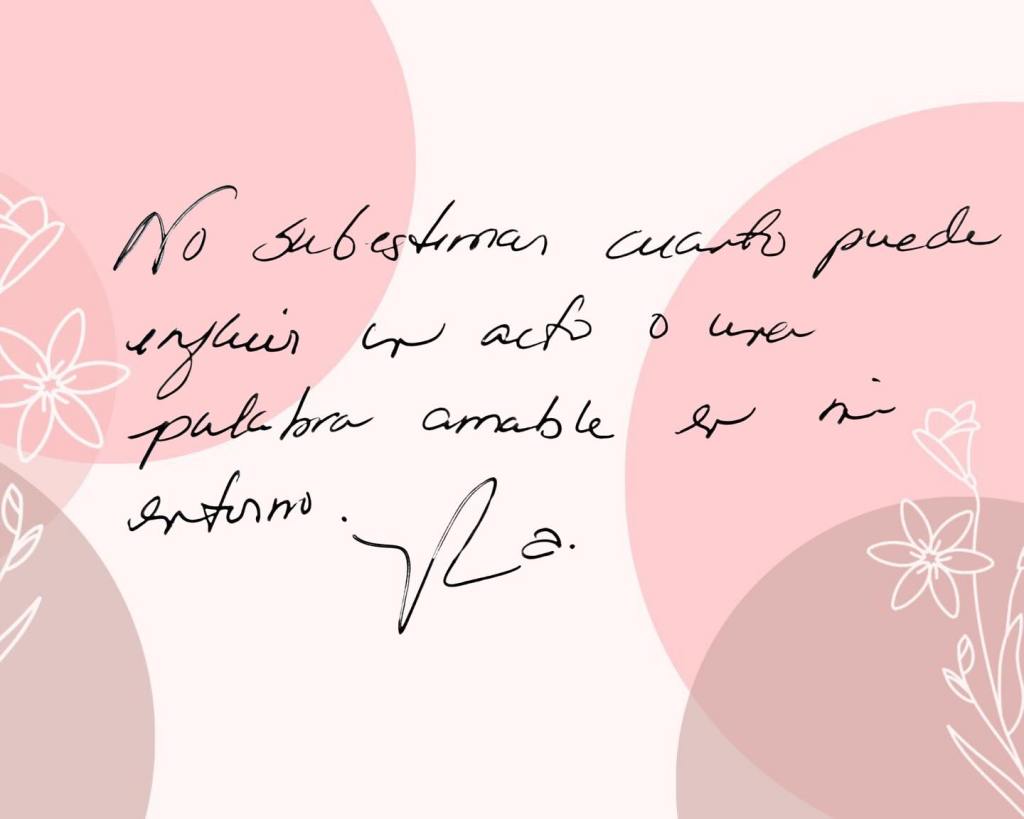 No subestimar cuanto puede
influir un acto o una
palabra amable en mi
entorno.